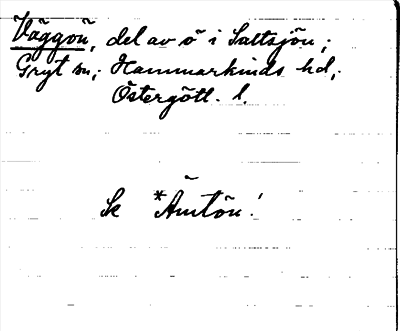 Väggön, del av ö i Saltsjön;
Gryt sn; Hammarkinds hd,
Östergötl. l.
Se *Ämtön!